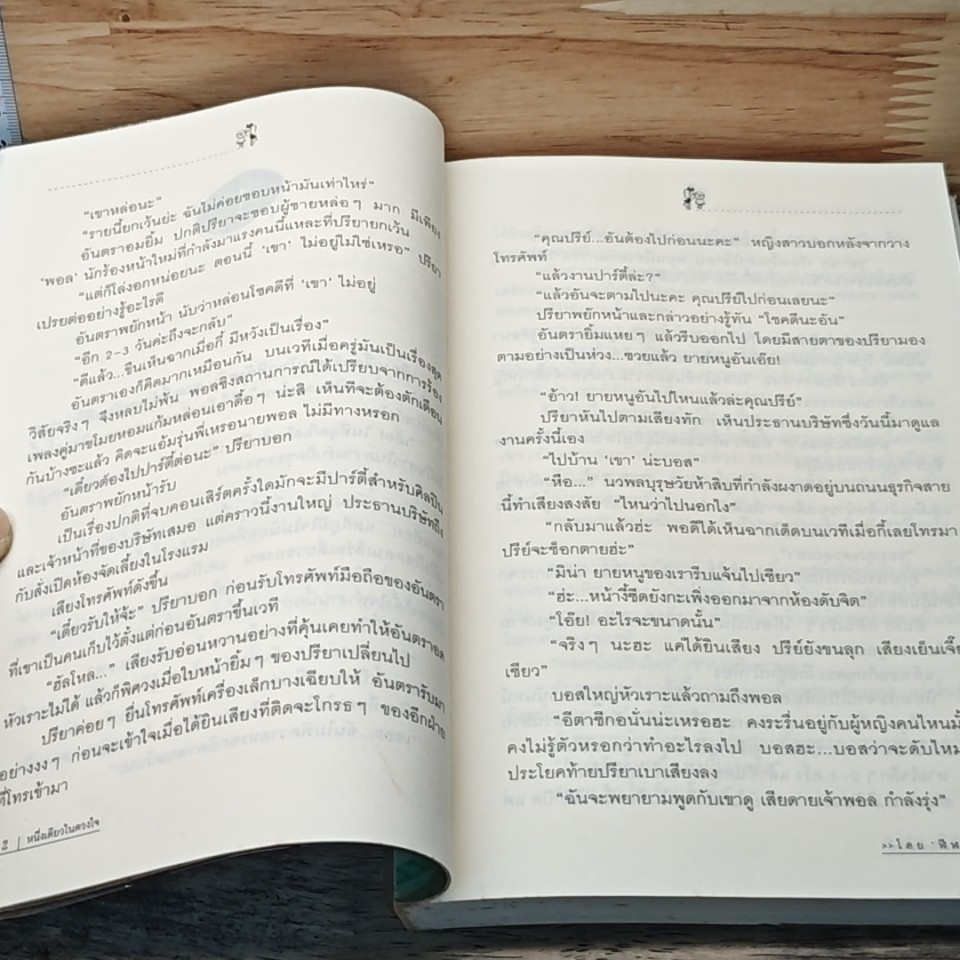 “เขาหล่อนะ”
“รายนี้ยกเว้นย่ะ ฉันไม่ค่อยชอบหน้ามันเท่าไหร่”
อันตราอมยิ้ม ปกติปรียาจะชอบผู้ชายหล่อๆ มาก มีเพียง
‘พอล’ นักร้องหน้าใหม่ที่กำลังมาแรงคนนี้แหละที่ปรียายกเว้น
“แต่ก็โล่งอกหน่อยนะ ตอนนี้ ‘เขา’ ไม่อยู่ไม่ใช่เหรอ” ปรียา
เปรยต่ออย่างรู้อะไรดี
อันตราพยักหน้า นับว่าหล่อนโชคดีที่ ‘เขา’ ไม่อยู่
“อีก 2-3 วันค่ะถึงจะกลับ”
“ดีแล้ว...ขืนเห็นฉากเมื่อกี้ มีหวังเป็นเรื่อง”
อันตราเองก็คิดมากเหมือนกัน บนเวทีเมื่อครู่มันเป็นเรื่องสุด
วิสัยจริงๆ จึงหลบไม่พ้น พอลซิงสถานการณ์ได้เปรียบจากการร้อง
เพลงคู่มาขโมยหอมแก้มหล่อนเอาดื้อๆ น่ะสิ เห็นทีจะต้องตักเตือน
กันบ้างซะแล้ว คิดจะแอ้มรุ่นพี่เหรอนายพอล ไม่มีทางหรอก
“เดี๋ยวต้องไปปาร์ตี้ต่อนะ” ปรียาบอก
อันตราพยักหน้ารับ
เป็นเรื่องปกติที่จบคอนเสิร์ตครั้งใดมักจะมีปาร์ตี้สำหรับศิลปิน
และเจ้าหน้าที่ของบริษัทเสมอ แต่คราวนี้งานใหญ่ ประธานบริษัทถึง
กับสั่งเปิดห้องจัดเลี้ยงในโรงแรม
เสียงโทรศัพท์ดังขึ้น
“เดี๋ยวรับให้จ้ะ” ปรียาบอก ก่อนรับโทรศัพท์มือถือของอันตรา
ที่เขาเป็นคนเก็บไว้ตั้งแต่ก่อนอันตราขึ้นเวที
“ฮัลโหล...” เสียงรับอ่อนหวานอย่างที่คุ้นเคยทำให้อันตราอด
หัวเราะไม่ได้ แล้วก็พิศวงเมื่อใบหน้ายิ้มๆ ของปรียาเปลี่ยนไป
ปรียาค่อยๆ ยื่นโทรศัพท์เครื่องเล็กบางเฉียบให้ อันตรารับมา
อย่างงงๆ ก่อนจะเข้าใจเมื่อได้ยินเสียงที่ติดจะโกรธๆ ของอีกฝ่าย
ที่โทรเข้ามา
2 | หนึ่งเดียวในดวงใจ
“คุณปรีย์...อันต้องไปก่อนนะคะ” หญิงสาวบอกหลังจากวาง
โทรศัพท์
“แล้วงานปาร์ตี้ล่ะ?”
“แล้วอันจะตามไปนะคะ คุณปรีย์ไปก่อนเลยนะ”
ปรียาพยักหน้าและกล่าวอย่างรู้ทัน “โชคดีนะอัน”
อันตรายิ้มแหยๆ แล้วรีบออกไป โดยมีสายตาของปรียามอง
ตามอย่างเป็นห่วง...ซวยแล้ว ยายหนูอันเอ๊ย!
“อ้าว! ยายหนูอันไปไหนแล้วล่ะคุณปรีย์”
ปรียาหันไปตามเสียงทัก เห็นประธานบริษัทซึ่งวันนี้มาดูแล
งานครั้งนี้เอง
“ไปบ้าน ‘เขา’ น่ะบอส”
“หือ...” นวพลบุรุษวัยห้าสิบที่กำลังผงาดอยู่บนถนนธุรกิจสาย
นี้ทำเสียงสงสัย “ไหนว่าไปนอกไง”
“กลับมาแล้วฮ่ะ พอดีได้เห็นฉากเด็ดบนเวทีเมื่อกี้เลยโทรมา
ปรีย์จะช็อกตายฮ่ะ”
“มิน่า ยายหนูของเรารีบแจ้นไปเชียว”
“ฮ่ะ...หน้างี้ซีดยังกะเพิ่งออกมาจากห้องดับจิต”
“โอ๊ย! อะไรจะขนาดนั้น”
“จริงๆ นะฮะ แค่ได้ยินเสียง ปรีย์ยังขนลุก เสียงเย็นเจี๊ย
เชียว”
บอสใหญ่หัวเราะแล้วถามถึงพอล
“อีตาซีกอนั่นน่ะเหรอฮะ คงระรื่นอยู่กับผู้หญิงคนไหนมั้
คงไม่รู้ตัวหรอกว่าทำอะไรลงไป บอสฮะ...บอสว่าจะดับไหม
ประโยคท้ายปรียาเบาเสียงลง
“ฉันจะพยายามพูดกับเขาดู เสียดายเจ้าพอล กำลังรุ่ง”
>> โดย